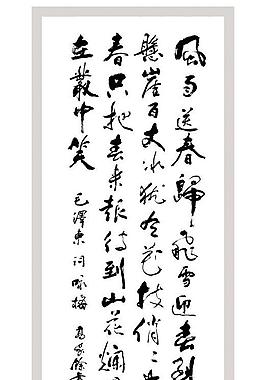 風雨送春歸飛雪迎春到
懸崖百丈冰猶有花枝俏々
春只把春来報待到山花爛
在叢中笑
毛澤東詞詠梅